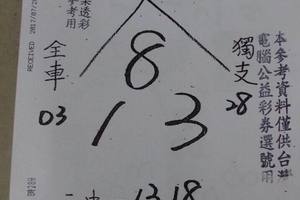 RECEIVED 2017/07/2
參考用
本參考資料僅供台灣
電腦公益彩券選號用
全車
獨支
8
03
1
3
28
13 18